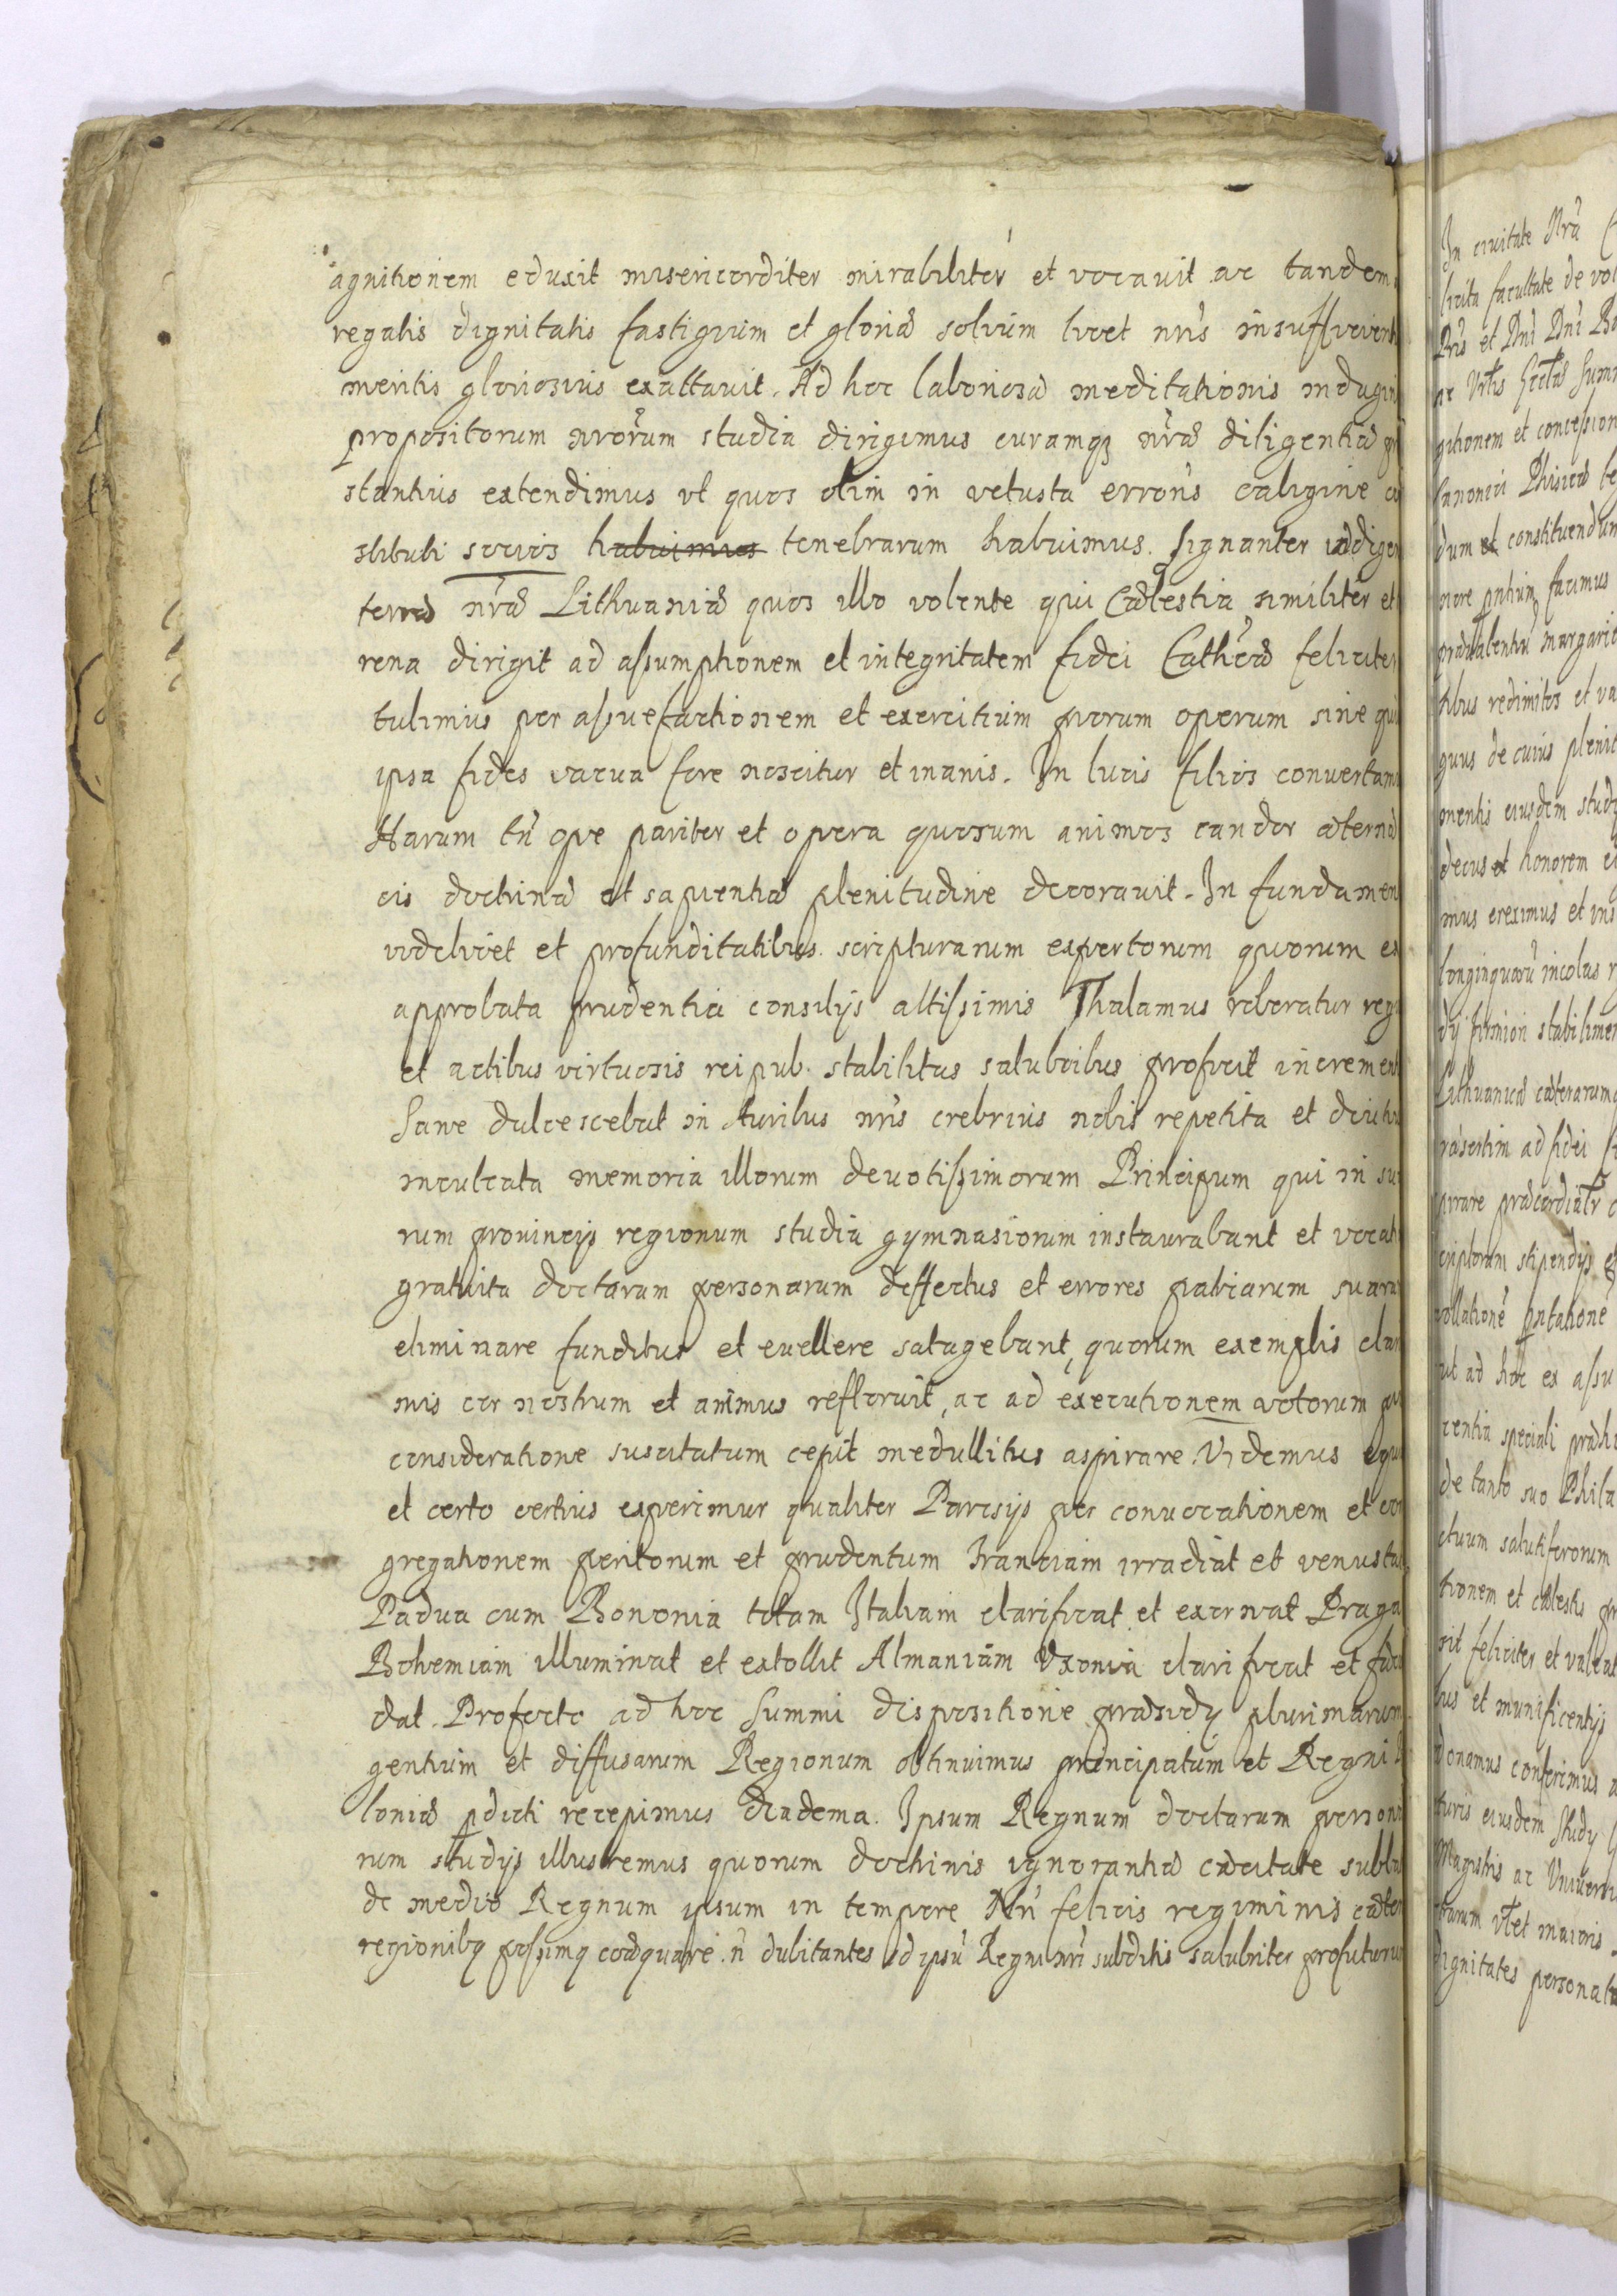 agnitionem eduxit misericorditer mirabiliter et vocavit ac tandem
regalis dignitatis fastigium et gloriæ solium licet nris insufficient
meritis gloriosius exaltavit. Ad hoc laboriosæ meditationis indagin
propositorum nrorum studia dirigimus curamq nræ diligentiæ
stantius extendimus vt quos olim in vetusta erroris caligine co
stituti socios habuimus tenebrarum habuimus. Signanter indigen
terræ nræ Lithuaniæ quos illo volente qui Cælestia similiter et
rena dirigit ad assumptionem et integritatem fidei Cathcæ feliciter
tulimus per assuefactionem et exercitium piorum operum sine qui
ipsa fides vacua fore noscitur et inanis. In lucis filios convertam
Harum tn ope pariter et opera quorum animos candor æternæ
cis doctrinæ et sapientiæ plenitudine decoravit. In fundamen
videlicet et profunditatibus scripturarum expertorum quorum ex
approbata prudentia consilijs altissimis Thalamus roboratur reg
et actibus virtuosis reipub. stabilitus salubribus proficit increment
Sane dulcescebat in Auribus nris crebrius nobis repetita et diuti
inculcata memoria illorum devotissimorum Principum qui in su
rum provincijs regionum studia gymnasiorum instaurabant et vocat
gratuita doctarum personarum deffectus et errores patriarum suaru
eliminare funditus et evellere satagebant, quorum exemplis clari
mis cor nostrum et animus refloruit, ac ad executionem votorum
consideratione suscitatum cepit medullitus aspirare. Videmus equi
et certo certius experimur qualiter Parisijs per convocationem et con
gregationem peritorum et prudentum Franciam irradiat et venustat
Padua cum Bononia totam Italiam clarificat et exornat Praga
Bohemiam illuminat et extollit Almaniam Vxonia clarificat et fæcu
dat. Profecto ad hoc Summi dispositione præsidy plurimarum
gentium et diffusarum Regionum obtinuimus principatum et Regni P
loniæ pdicti recepimus diadema. Ipsum Regnum doctarum persona
rum studijs illustremus quorum doctrinis ignorantiæ cæcitate subla
de medio Regnum ipsum in tempore Nri felicis regiminis cæter
regionibq possimq coæquare. n dubitantes id ipsu Regni nri subditis salubriter profuturu
In civitate Nra
licita facultate de vol
Pris et Dni Dni Bo
ac Vrtis Sctæ Sum
gitionem et concession
Canonici Phisicæ le
dum et constituendum
more pntium facimus
prævalentiu margarit
tibus redimitos et va
quus de cuius plenit
mentis eiusdem studi
decus et honorem
mus ereximus et ins
longinquoru incolas r
dij firmiori stabilimen
Lithuanicæ cæterarum
ræsertim ad fidei
pirare præcordialr
criptorum stipendijs et
collatione pntatione
ut ad hoc ex assu
centia speciali prædi
de tanto suo Phila
ctuum salutiferorum
tionem et cælestis
sit feliciter et valeat
bus et munificentijs
donamus conferimus
turis eiusdem Study
Magistris ac Universi
ntarum vlet maioris
dignitates personatu